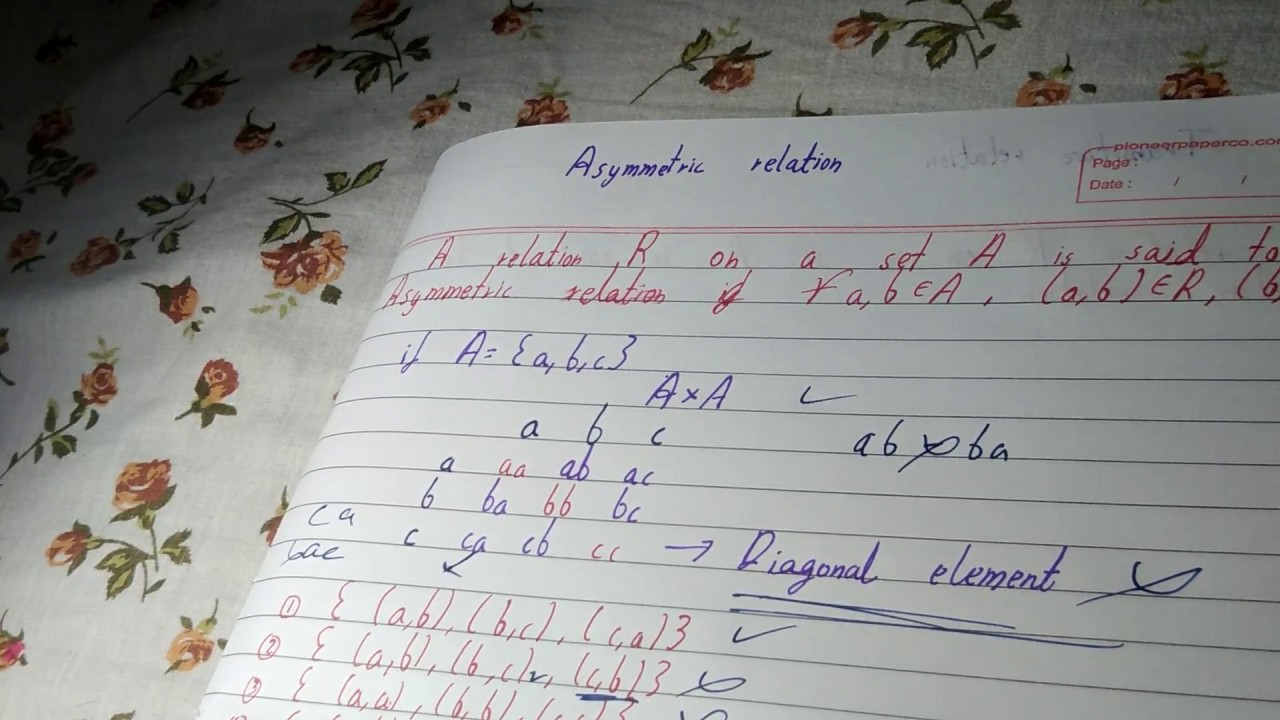 Asymmetric relation
pioneerpaperco.co
Page :
Date : / /
A relation R on a set A is said to
Asymmetric relation if ∀ a,b ∈ A, (a,b) ∈ R, (b,
if A = {a,b,c}
A×A ✓
a b c
ab ba
a aa ab ac
b ba bb bc
ca
c ca cb cc → Diagonal element
bac
① {(a,b), (b,c), (c,a)} ✓
② {(a,b), (b,c), (c,b)}
③ {(a,a), (b,b),